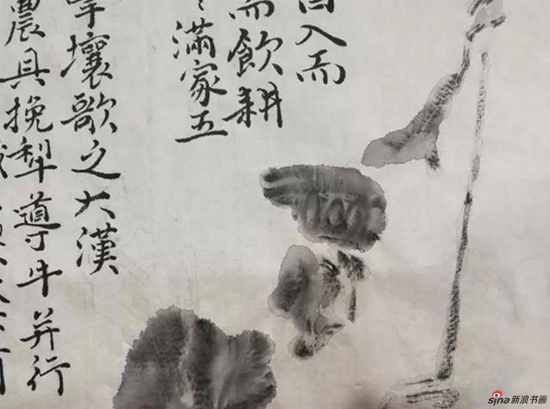 日入而
而飲耕
滿家五
壤歌之大漢
農具挽犁導牛并行
sina新浪书画